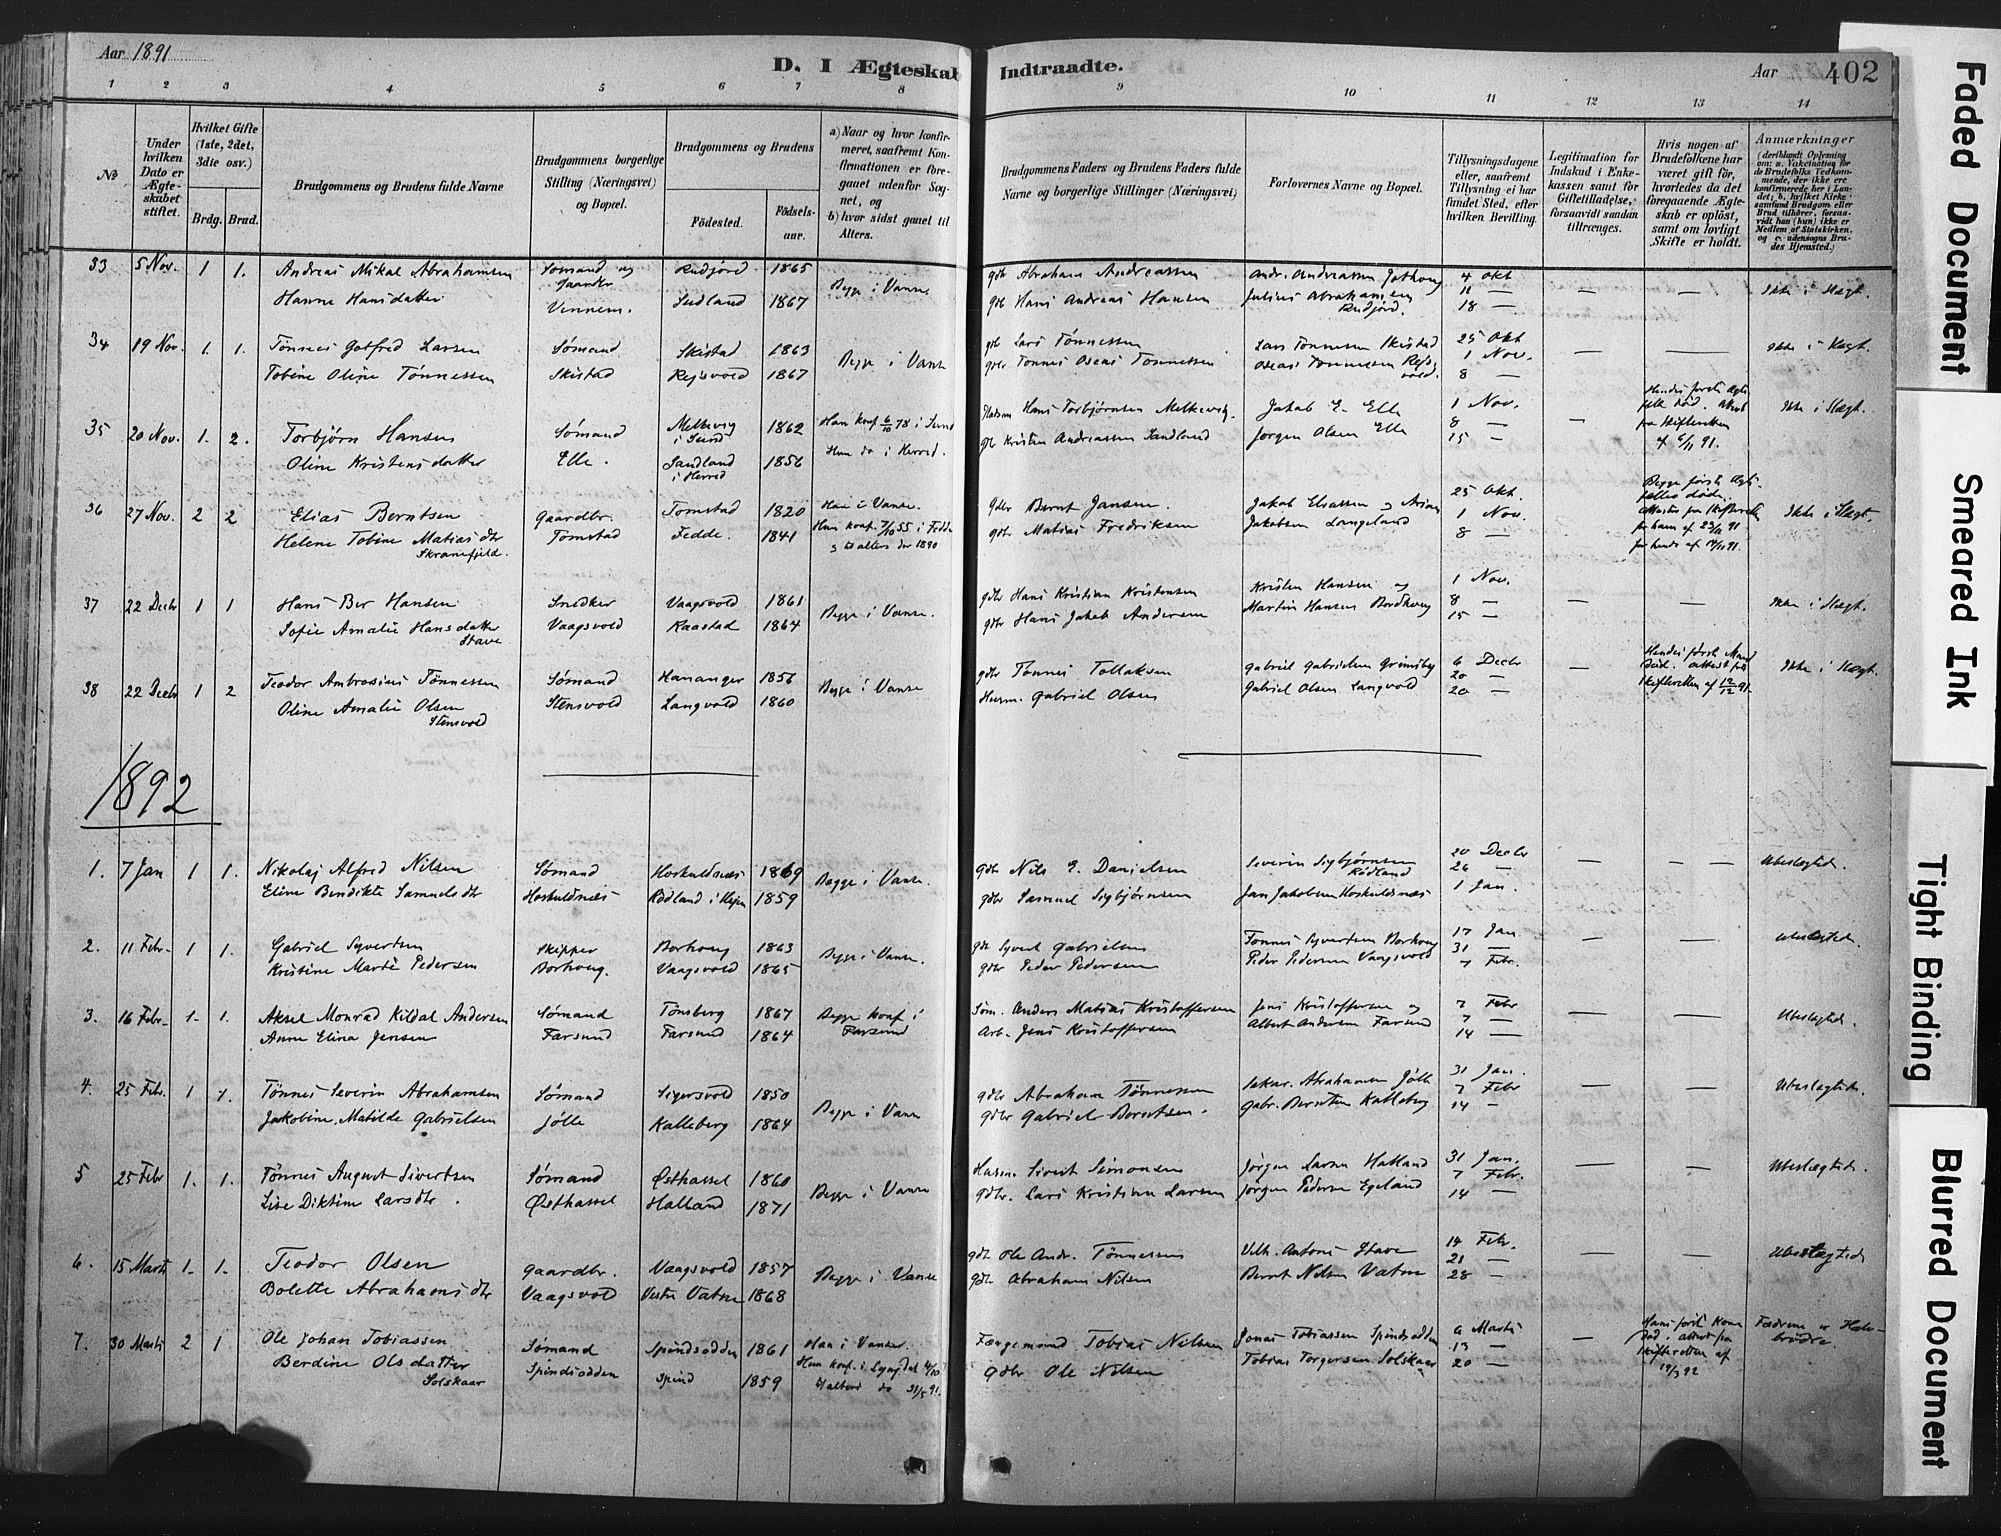 Aar 1891
D. I Ægteskab Indtraadte.
Aar 402
1 2 3 4 5 6 7 8 9 10 11 12 13 14
No
Under hvilken Dato er Ægteskabet stiftet.
Hvilket Gifte (1ste, 2det, 3die osv.)
Brdg. Brud.
Brudgommens og Brudens fulde Navne
Brudgommens borgerlige Stilling (Næringsvei) og Bopæl.
Brudgommens og Brudens
Födested.
Födselsaar.
a) Naar og hvor konfirmeret, saafremt Konfirmationen er foregaaet udenfor Sognet, og
b) hvor sidst gaaet til Alters.
Brudgommens Faders og Brudens Faders fulde Navne og borgerlige Stillinger (Næringsvei)
Forlovernes Navne og Bopæl.
Tillysningsdagene eller, saafremt Tillysning ei har fundet Sted, efter hvilken Bevilling.
Legitimation for Indskud i Enkekassen samt for Giftetilladelse, forsaavidt saadan tiltrænges.
Hvis nogen af Brudefolkene har været gift för, hvorledes da det foregaaende Ægteskab er oplöst, samt om lovligt Skifte er holdt.
Anmærkninger
(deriblandt Oplysning om: a. Vakcination for de Brudefolks Vedkommende, der ikke ere konfirmerede her i Landet; b. hvilket Kirkesamfund Brudgom eller Brud tilhörer, forsaavidt han (hun) ikke er Medlem af Statskirken, og c. udensogns Brudes Hjemsted.)
33 5 Nov. 1 1. Andreas Mikal Abrahamsen Sømand og Rudjord 1865 Begge i Vanse gdbr Abraham Andreassen Andr. Andreassen 4 Okt — — Ikke i Slægt.
Hanne Hansdatter gaardbr Vennem. Sudland 1867 gdbr Hans Andreas Hansen Julius Abrahamsen Rudjord. 11 —
18 —
34 19 Nov. 1. 1. Tönnes Gotfred Larsen Sømand Skistad 1863 Begge i Vanse gdbr Lars Tönnessen Lars Tönnesen Skistad 25 Okt — — Ikke i Slægt.
Tobine Oline Tönnessen Skistad Rejsvold 1867 gdbr Tönnes Oseas Tönnessen Oseas Tönnesen Rejsvold. 1 Nov.
8 —
35 20 Nov. 1. 2. Torbjörn Hansen Sømand Melkevig i Lund 1862 Han konf 6/10 78 i Lund Hans Torbjörnsen Melkevig. Jakob E. Elle 1 Nov. — Hendes første Ægtefelle död. Attest fra Skifteretten af 6/11 91. Ikke i Slægt.
Oline Kristensdatter Elle. Sandland i Herred 1856 Hun do i Herred. gdbr Kristen Andreassen Sandland Jörgen Olsen Elle 8 —
15 —
36 27 Nov. 2 2 Elias Berntsen Gaardbr. Tomstad 1820 Han i Vanse. gdbr Bernt Jansen. Jakob Eliassen og Arian 25 Okt. Begge første Ægtefæller døde. Attester fra Skifteretten for ham af 23/11 91 for hende af 14/11 91. Ikke i Slægt.
Helene Tobine Matias dtr Skranefjeld. Tomstad Fedde. 1841 Hun konf. 7/10 55 i Fedde og til alters der 1890 gdbr Matias Fredriksen Jakobsen Langeland 1 Nov.
8 —
37 22 Decbr 1 1 Hans Ber Hansen Snedker Vaagsvold 1861 Begge i Vanse. gdbr Hans Kristian Kristensen Kristen Hansen og 1 Nov. — — Ikke i Slægt.
Sofie Amalie Hansdatter Stave Vaagsvold Raastad 1864 gdbr Hans Jakob Andersen Martin Hansen Bordhoug 8 —
15 —
38 22 Decbr 1 2 Teodor Ambrosius Tönnessen Sømand Hananger 1856 Begge i Vanse gdbr Tönnes Tollaksen Gabriel Gabrielsen Grimsby 6 Decbr — Hendes første Mand död. Attest fra Skifteretten af 12/12 91. Ikke i Slægt.
Oline Amalie Olsen Stensvold Stensvold Langvold 1860 Husm. Gabriel Olsen Gabriel Olsen Langvold 20 —
20 —
1892
1. 7 Jan 1 1. Nikolaj Alfred Nilsen Sømand Hoskuldsnæs 1869 Begge i Vanse. gdbr Nils E. Danielsen Severin Sigbjörnsen Rödland 20 Decbr — — Ubeslægted.
Eline Bendikte Samuelsdtr Hoskuldsnæs Rödland i Hejen 1859 gdbr Samuel Sigbjörnsen Jan Jakobsen Hoskuldsnæs 26 —
1 Jan.
2. 11 Febr. 1 1. Gabriel Syvertsen Skipper Borhoug 1863 Begge i Vanse. gdbr Syvert Gabrielsen Tönnes Syvertsen Borhoug 17 Jan — — Ubeslægted.
Kristine Marte Pedersen Borhoug. Vaagsvold 1865 gdbr Peder Pedersen Peder Pedersen Vaagsvold 31 —
7 Febr.
3. 16 Febr. 1. 1. Aksel Monrad Kildal Andersen Sømand Tönsberg 1867 Begge konf i Farsund Søm. Anders Matias Kristoffersen Jens Kristoffersen og 7 Febr — — Ubeslægted.
Anne Elina Jensen Farsund Farsund 1864 Arb. Jens Kristoffersen Albert Andersen Farsund 7 —
14 —
4. 25 Febr. 1 1. Tönnes Severin Abrahamsen Sømand Sigersvold 1850 Begge i Vanse gdbr Abraham Tönnessen Sakar. Abrahamsen Jölle 31 Jan. — — Ubeslægted.
Jakobine Matilde Gabrielsen Jölle Kalleberg 1864 gdbr Gabriel Berntsen. Gabr. Berntsen Kalleberg 7 Febr
14 —
5 25 Febr 1. 1. Tönnes August Sivertsen Sømand Østhassel 1860 Begge i Vanse Husm. Sivert Simonsen Jörgen Larsen Halland 31 Jan. — — Ubeslægted.
Lise Diktine Larsdtr. Østhassel Halland 1871 gdbr. Lars Kristian Larsen Jörgen Pedersen Egeland 7 Febr.
14 —
6. 15 Marts 1. 1. Teodor Olsen Gaardbr. Vaagsvold 1857 Begge i Vanse gdbr Ole Andr. Tönnessen Vilh. Antons Stave 14 Febr. — — Ubeslægted
Bolette Abrahamsdtr Vaagsvold Vestre Vatne 1868 gdbr Abraham Nilsen Bernt Nilsen Vatne 21 —
28 —
7. 30 Marts 2 1 Ole Johan Tobiassen Sømand Spindsodden 1861 Han i Vanse. Færgemand Tobias Nilsen Jonas Tobiassen Spindsodden 6 Marts — Hans første Kone død, attest fra Skifteretten af 19/3 92 Fædrene er Halvbrödre
Berdine Olsdatter Solskaar Spindsodden Spind 1859 Hun konf. i Lyngdal 4/10 til alters do 31/5 91. Gdbr Ole Nilsen Tobias Torgersen Solskaar 13 —
20 —
Faded Document
Smeared Ink
Tight Binding
Blurred Document